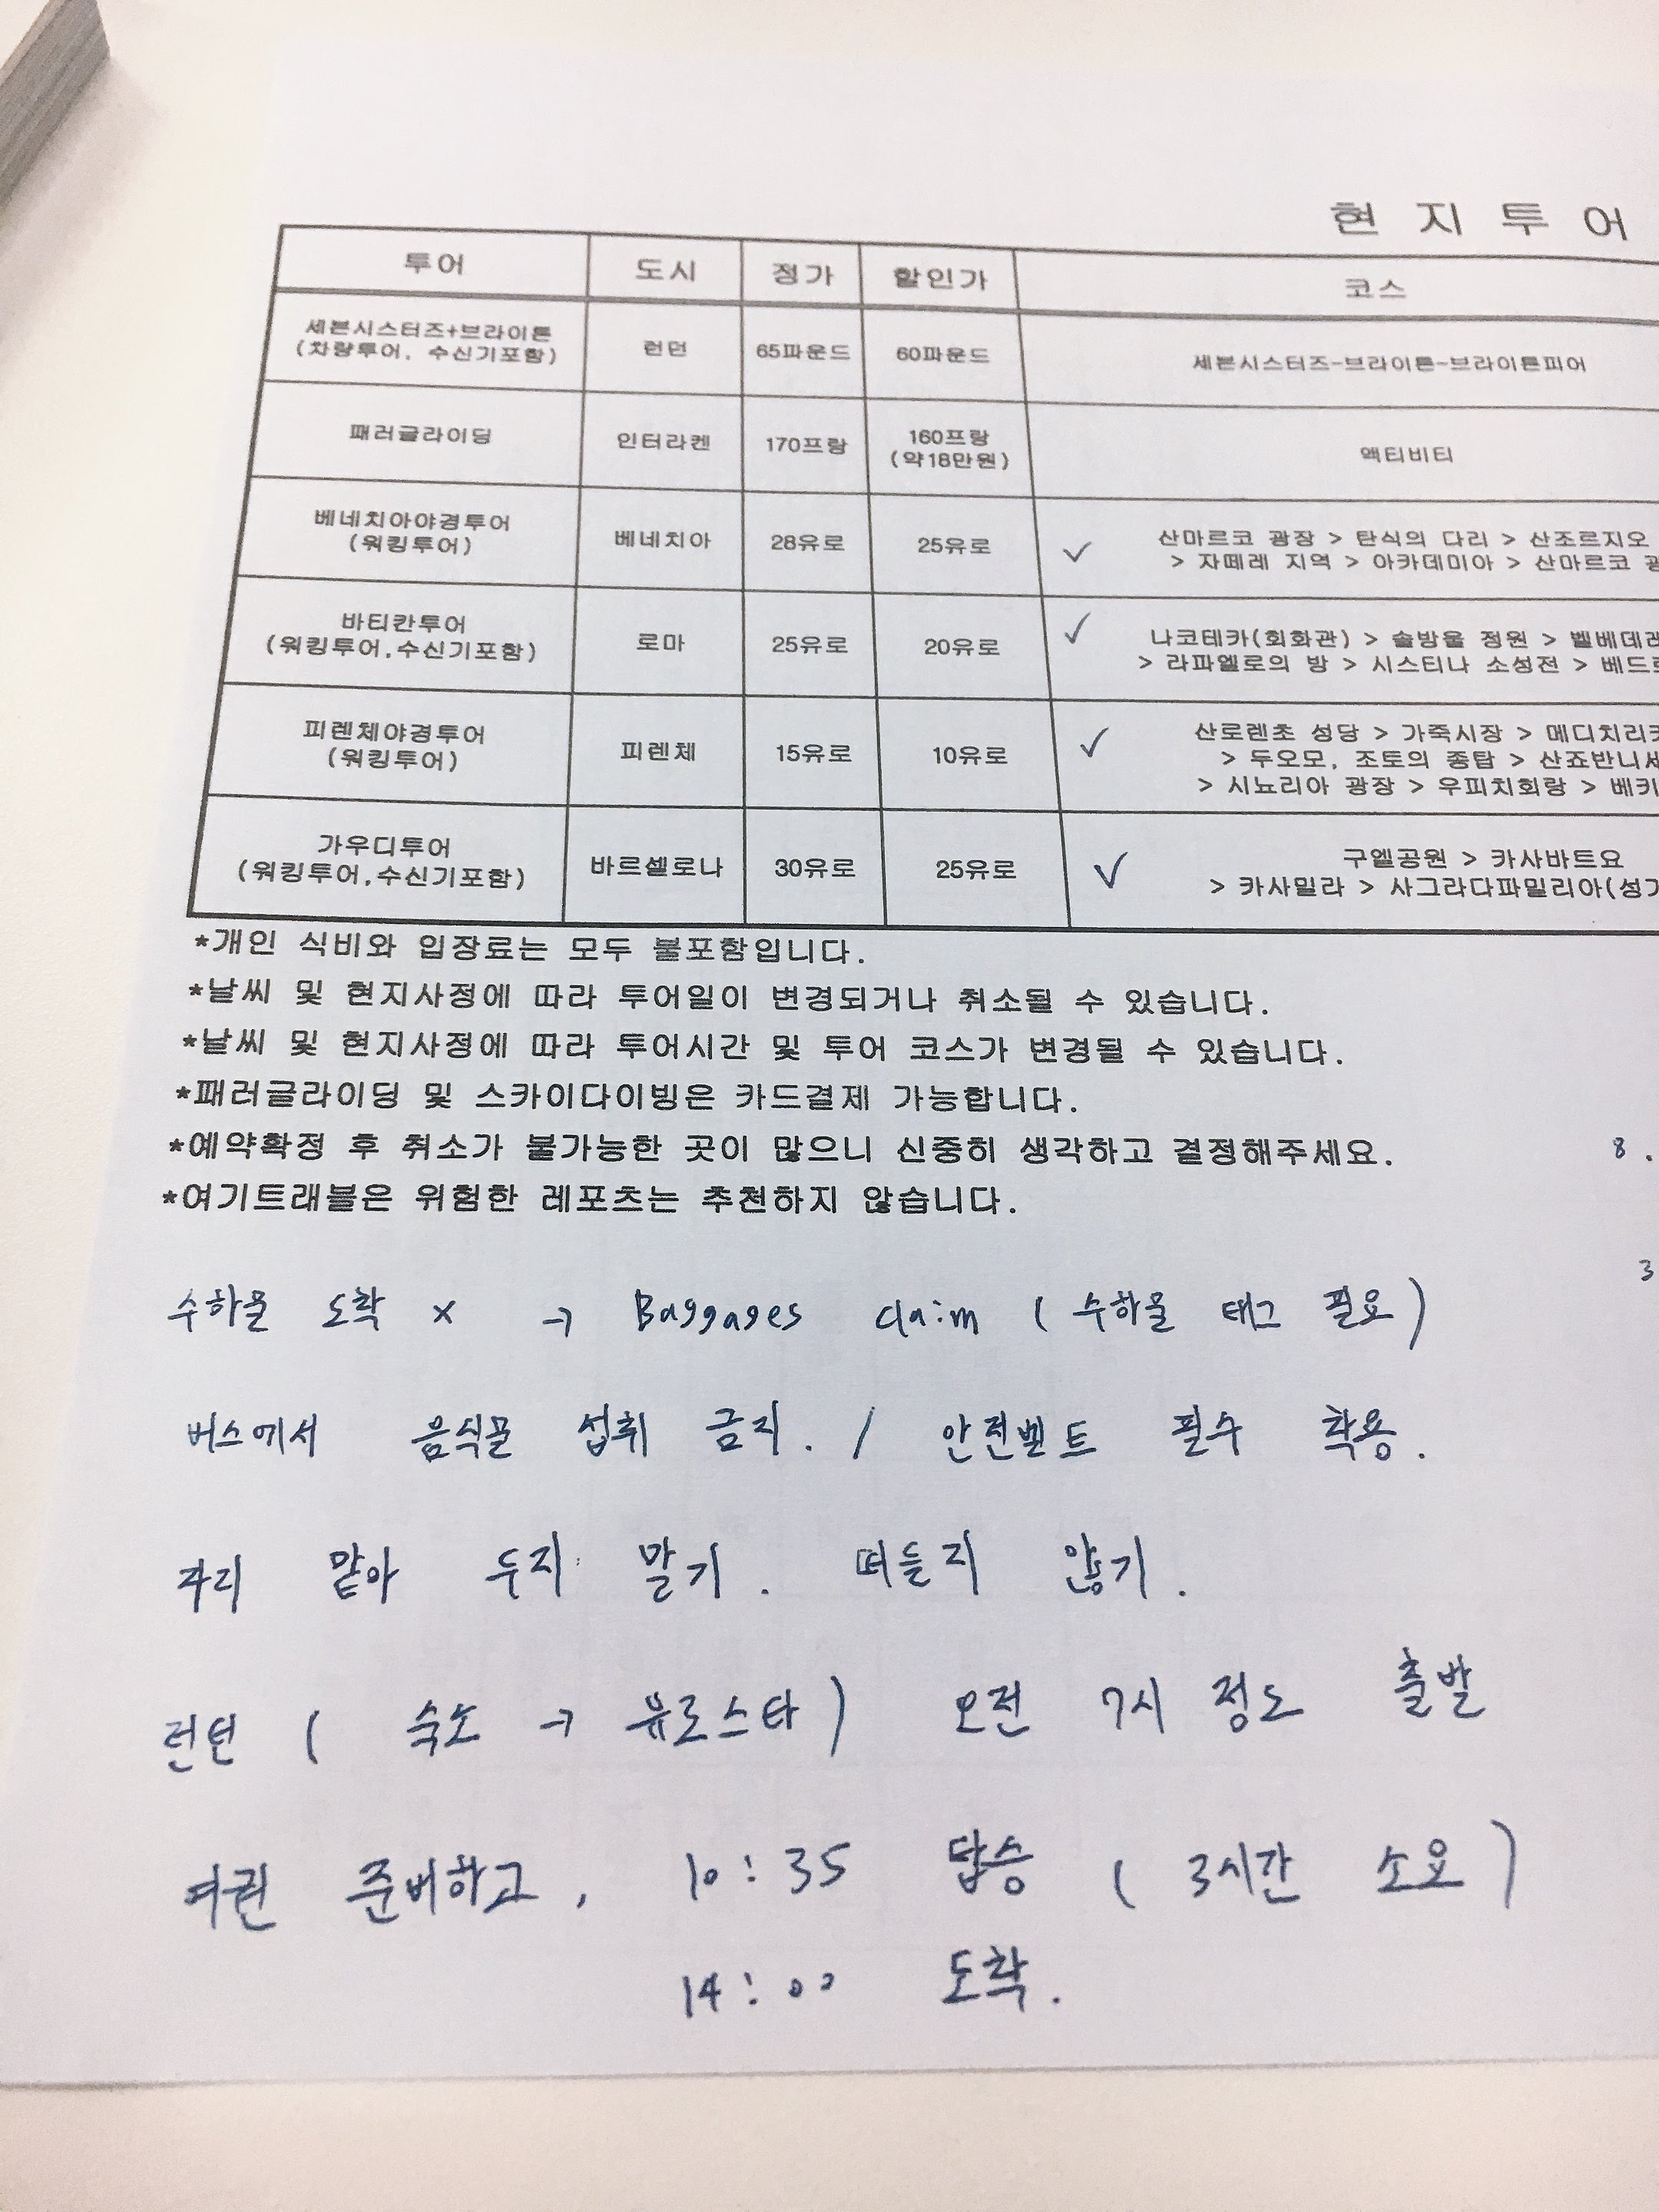 현지투어
투어 도시 정가 할인가 코스
세븐시스터즈+브라이튼
(차량투어, 수신기포함)
런던 65파운드 60파운드 세븐시스터즈-브라이튼-브라이튼피어
패러글라이딩 인터라켄 170프랑 160프랑
(약18만원)
액티비티
베네치아야경투어
(워킹투어)
베네치아 28유로 25유로 ✓ 산마르코 광장 > 탄식의 다리 > 산조르지오
> 자떼레 지역 > 아카데미아 > 산마르코
바티칸투어
(워킹투어,수신기포함)
로마 25유로 20유로 ✓ 나코테카(회화관) > 솔방울 정원 > 벨베데레
> 라파엘로의 방 > 시스티나 소성전 >
피렌체야경투어
(워킹투어)
피렌체 15유로 10유로 ✓ 산로렌초 성당 > 가죽시장 >
> 두오모, 조토의 종탑 >
> 시뇨리아 광장 > 우피치회랑 >
가우디투어
(워킹투어,수신기포함)
바르셀로나 30유로 25유로 ✓ 구엘공원 > 카사바트요
> 카사밀라 > 사그라다파밀리아
*개인 식비와 입장료는 모두 불포함입니다.
*날씨 및 현지사정에 따라 투어일이 변경되거나 취소될 수 있습니다.
*날씨 및 현지사정에 따라 투어시간 및 투어 코스가 변경될 수 있습니다.
*패러글라이딩 및 스카이다이빙은 카드결제 가능합니다.
*예약확정 후 취소가 불가능한 곳이 많으니 신중히 생각하고 결정해주세요.
8.
*여기트래블은 위험한 레포츠는 추천하지 않습니다.
3
수하물 도착 x → Baggages claim ( 수하물 태그 필요 )
버스에서 음식물 섭취 금지. / 안전벨트 필수 착용.
자리 맡아 두지 말기. 떠들지 않기.
런던 ( 숙소 → 유로스타 ) 오전 7시 정도 출발
여권 준비하고, 10:35 탑승 ( 3시간 소요 )
14:00 도착.